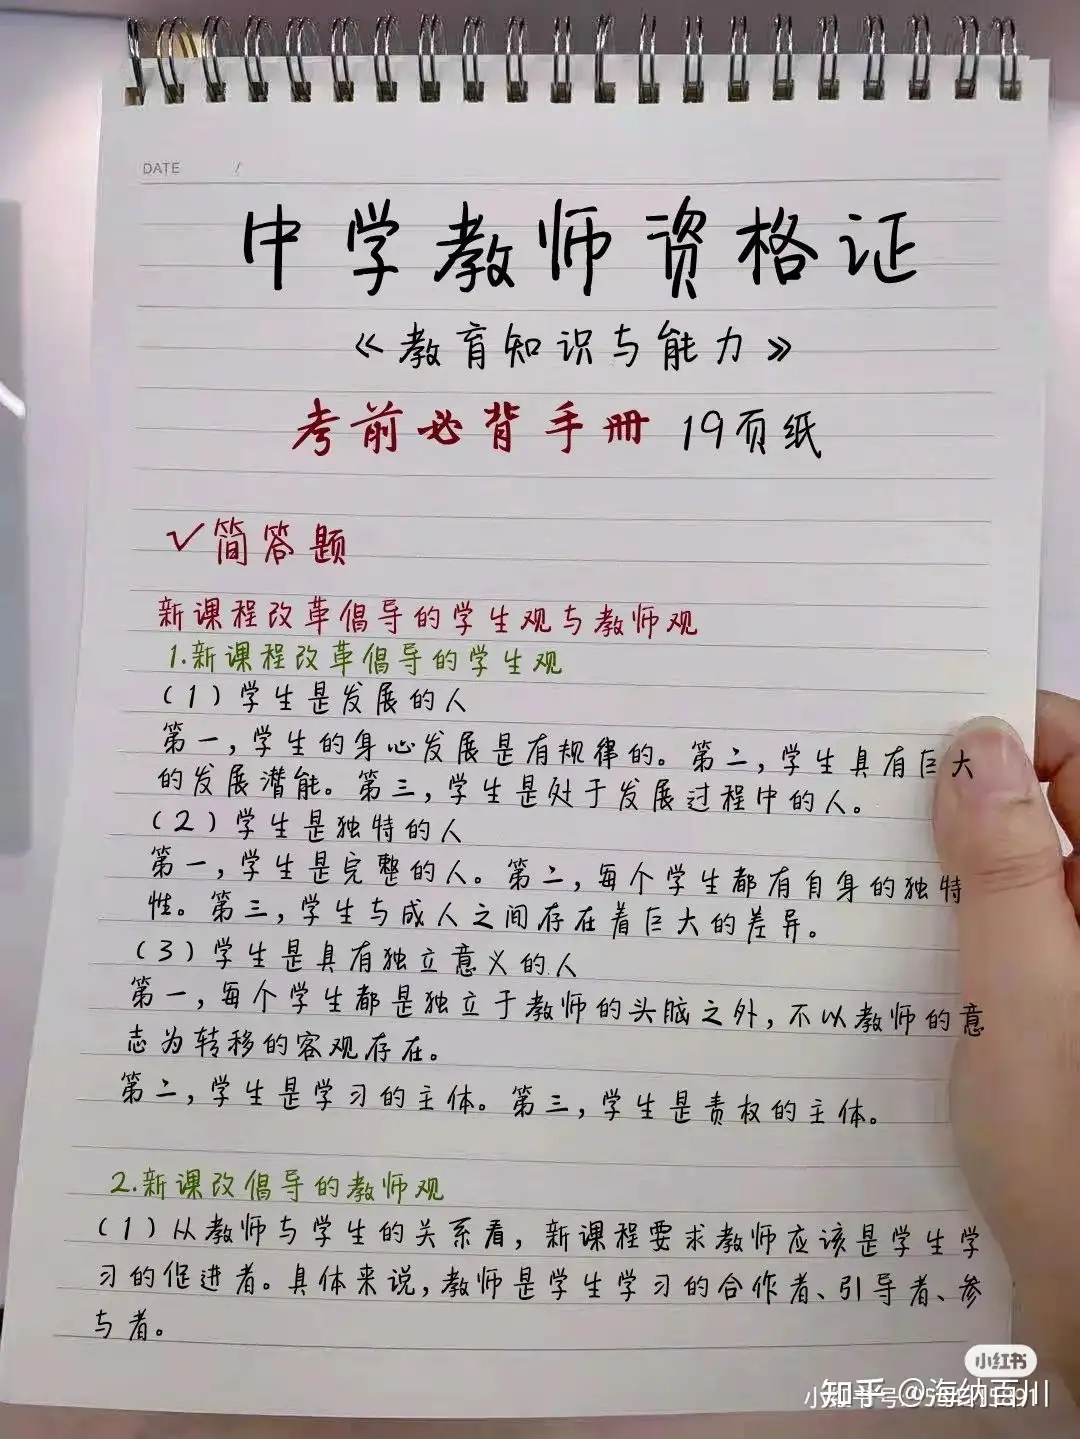 DATE /
中学教师资格证
《教育知识与能力》
考前必背手册 19页纸
✓简答题
新课程改革倡导的学生观与教师观
1.新课程改革倡导的学生观
(1)学生是发展的人
第一,学生的身心发展是有规律的。第二,学生具有巨大
的发展潜能。第三,学生是处于发展过程中的人。
(2)学生是独特的人
第一,学生是完整的人。第二,每个学生都有自身的独特
性。第三,学生与成人之间存在着巨大的差异。
(3)学生是具有独立意义的人
第一,每个学生都是独立于教师的头脑之外,不以教师的意
志为转移的客观存在。
第二,学生是学习的主体。第三,学生是责权的主体。
2.新课改倡导的教师观
(1)从教师与学生的关系看,新课程要求教师应该是学生学
习的促进者。具体来说,教师是学生学习的合作者、引导者、参
与者。
小红书
知乎 @海纳百川